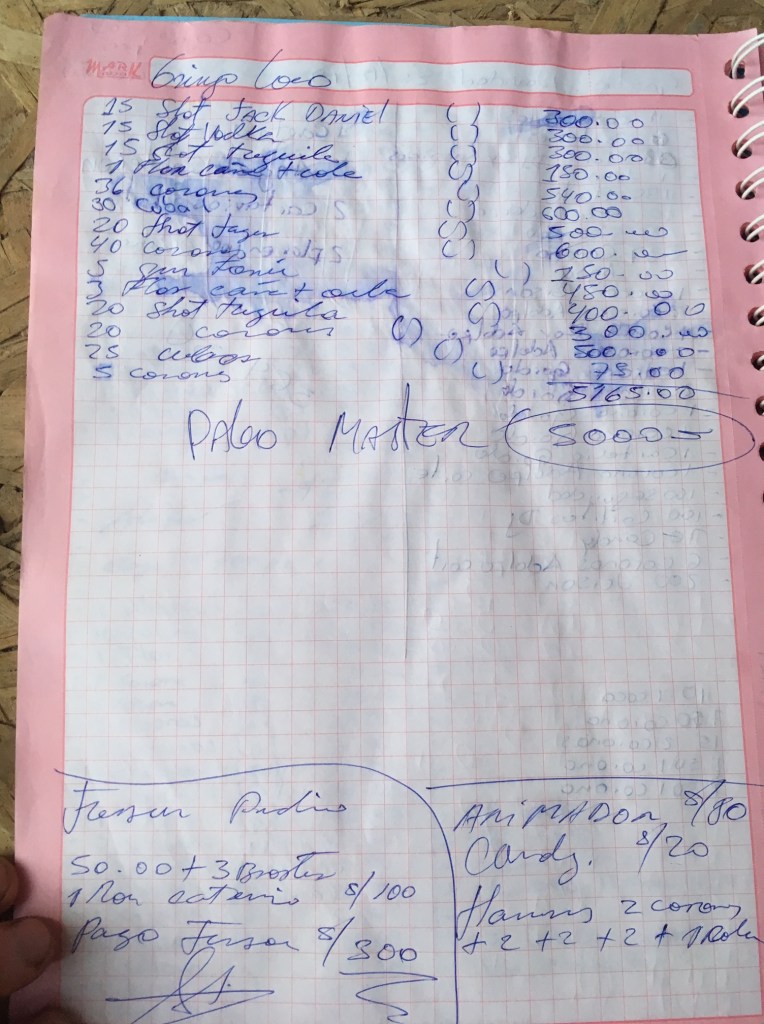 Gringo Loco
15 Shot JACK DANIEL ( ) 300.00
15 Shot Vodka ( ) 300.00
15 Shot tequila ( ) 300.00
1 Flor caña + cola ( ) 150.00
36 coronas ( ) 540.00
30 Cuba ( ) 600.00
20 Shot ( ) 500.00
40 coronas ( ) 600.00
5 gin Tonic ( ) 150.00
3 Flor cañ + cola ( ) 450.00
20 Shot tequila ( ) 400.00
20 coronas ( ) 300.00
25 ( ) 500.00
5 coronas ( ) 75.00
5165.00
PAGO MASTER 5000-
50.00 + 3
1 Ron S/100
Pago S/300
ANiMADOR S/80
Candy. S/20
2 coronas
+ 2 + 2 + 2 + 1